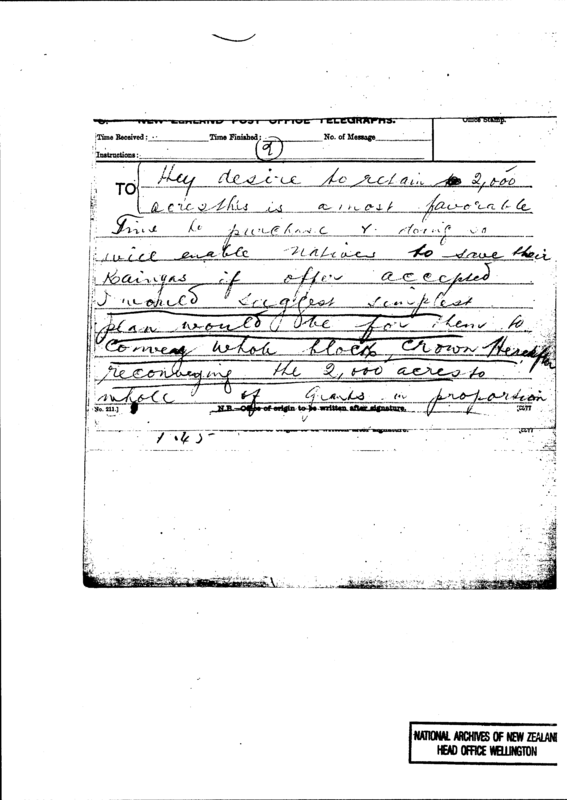 NEW ZEALAND POST OFFICE TELEGRAPHS.
Office Stamp.
Time Received:
Time Finished:
No. of Message
(2)
Instructions:
TO
they desire to retain 2,000
acres this is a most favorable
Time to purchase & doing so
will enable natives to save their
Kaingas if offer accepted
I would suggest simplest
plan would be for them to
convey whole block Crown thereafter
reconveying the 2,000 acres to
whole of Grants in proportion
No. 211.]
N.B.—Office of origin to be written after signature.
1.45
NATIONAL ARCHIVES OF NEW ZEALAND
HEAD OFFICE WELLINGTON